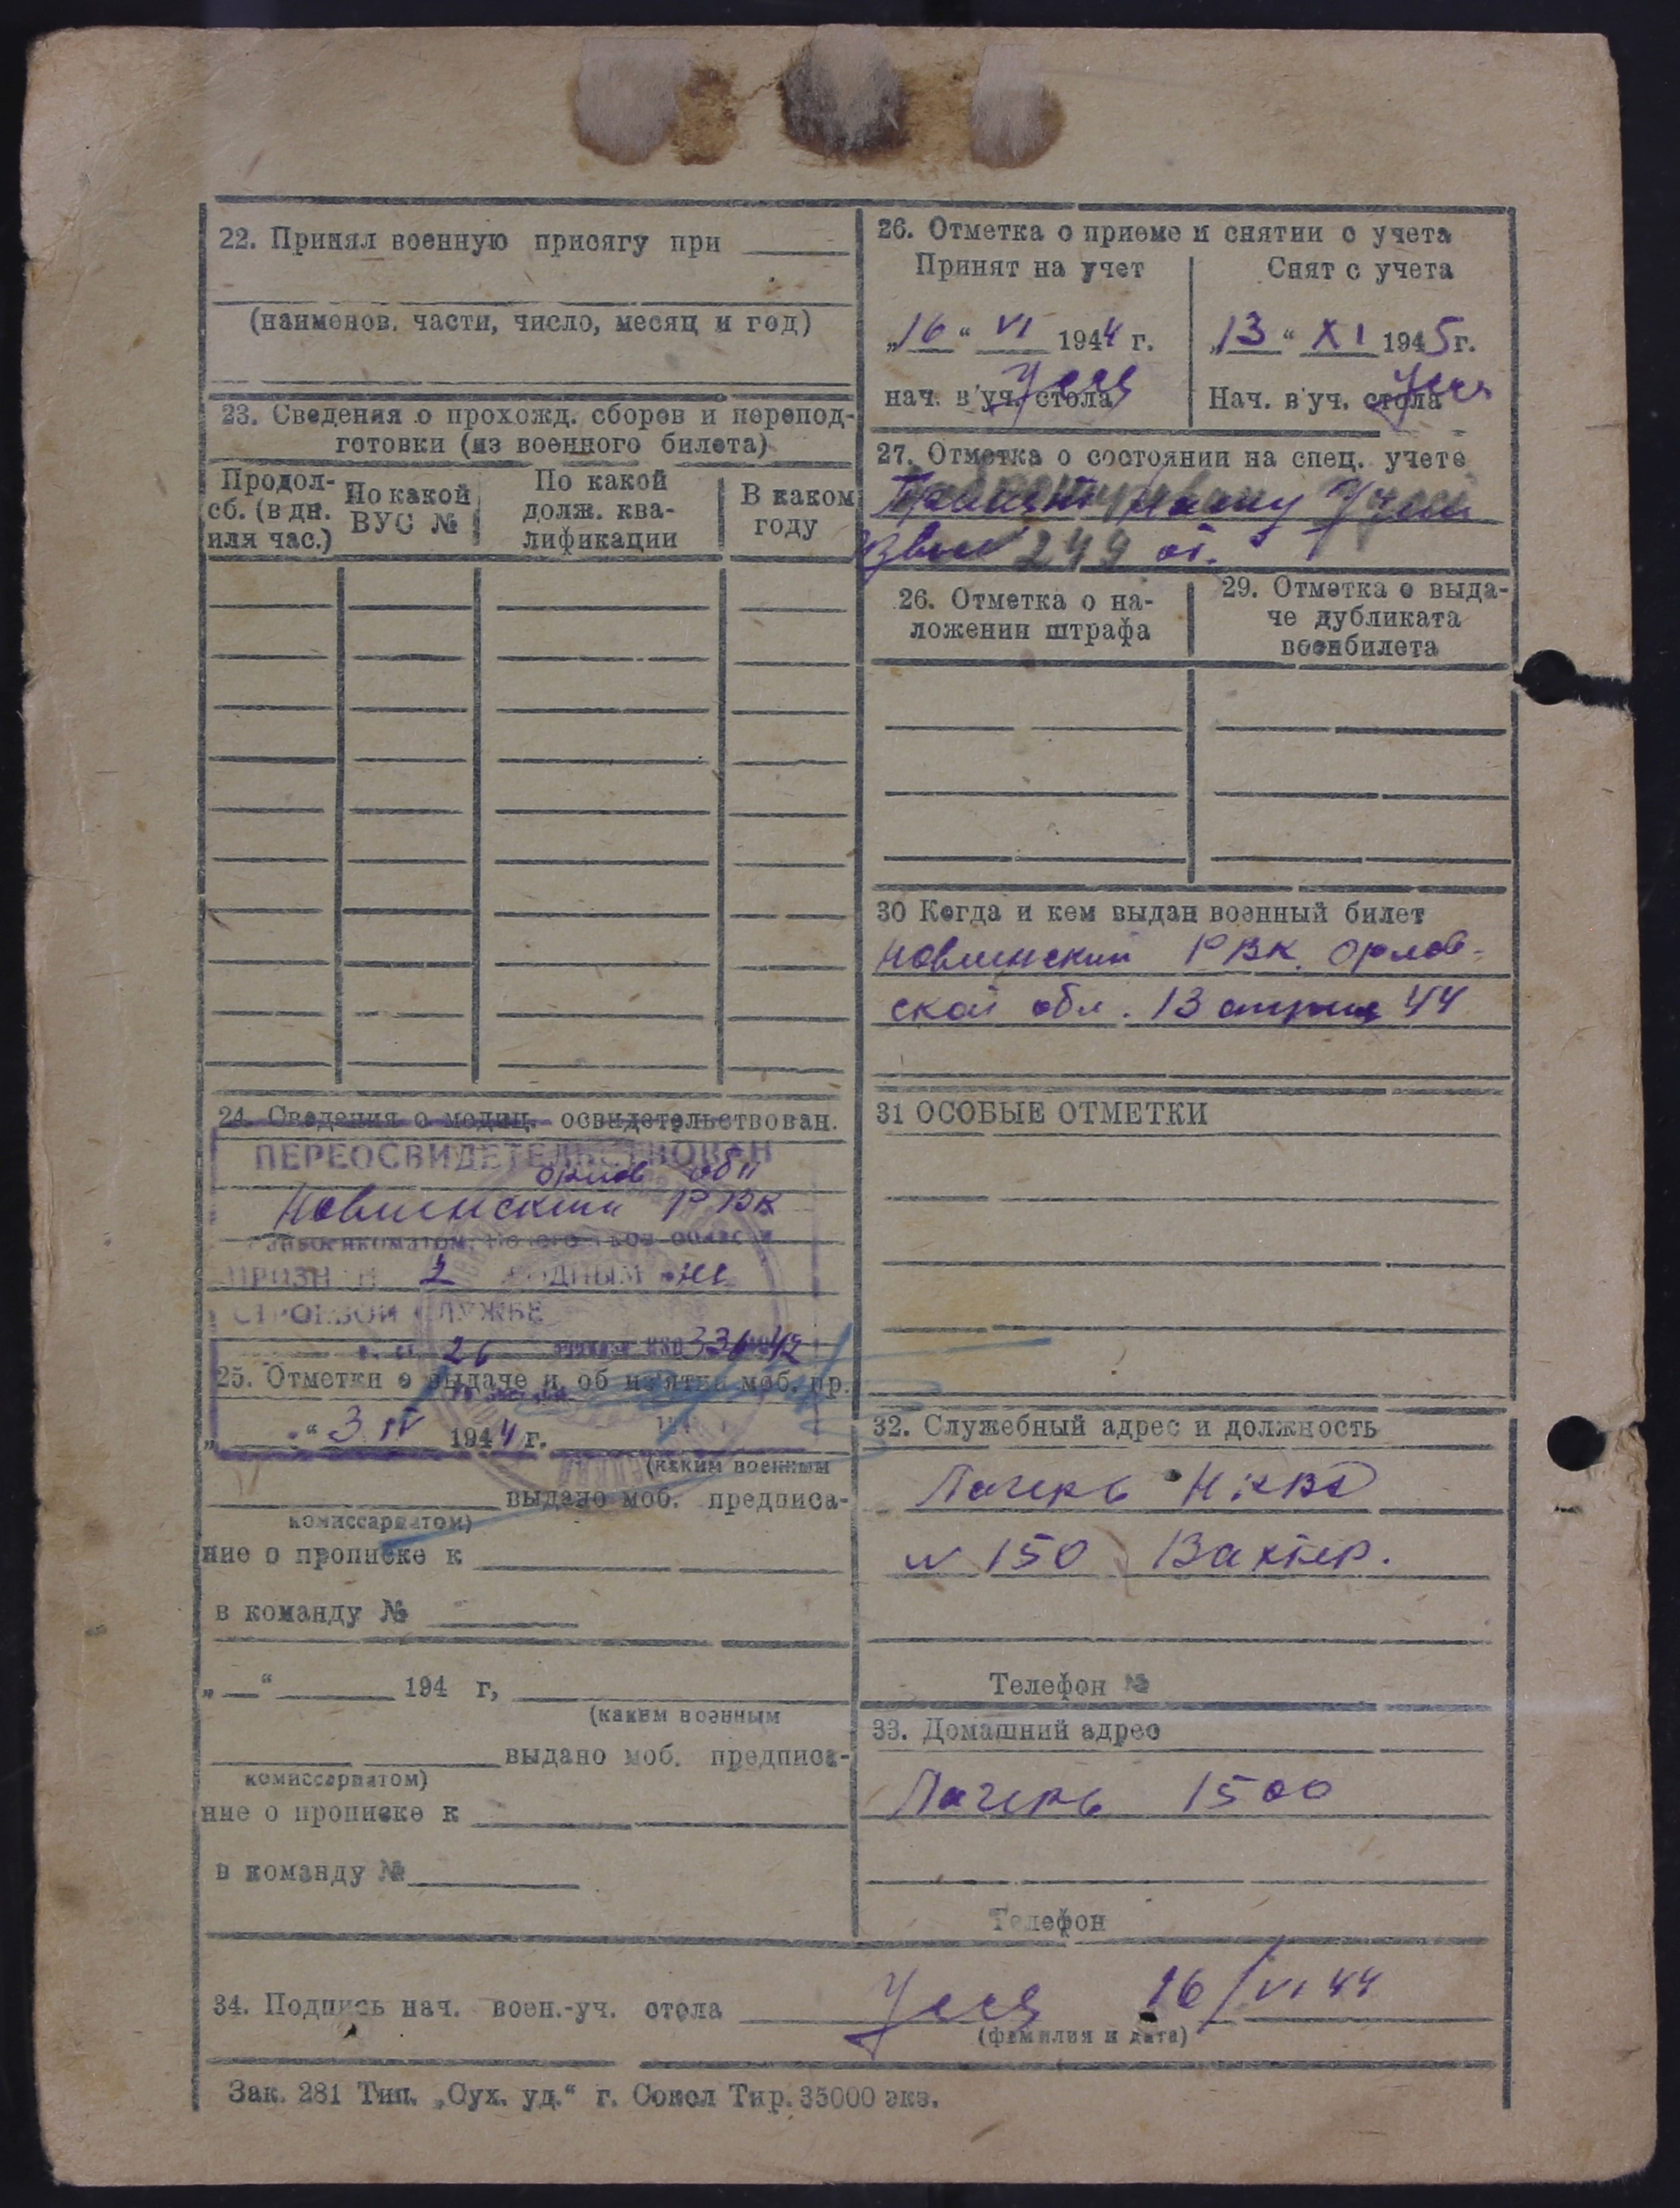 22. Принял военную присягу при
(наименов. части, число, месяц и год)
23. Сведения о прохожд. сборов и перепод-
готовки (из военного билета)
Продол-
сб. (в дн.
или час.)
По какой
ВУС №
По какой
долж. ква-
лификации
В каком
году
24. Сведения о медиц. освидетельствован.
ПЕРЕОСВИДЕТЕЛЬСТВОВАН
орлов обл
РВК
2
СТРОЕВОЙ СЛУЖБЕ
26 336 42
25. Отметки о выдаче и об из'ятии моб. пр.
„ “ 3 IV 1944 г.
(каким военным
выдано моб. предписа-
комиссариатом)
ние о прописке к
в команду №
„ “ 194 г,
(каким военным
выдано моб. предписа-
комиссариатом)
ние о прописке к
в команду №
26. Отметка о приеме и снятии с учета
Принят на учет
„16“ VI 1944 г.
нач. в'уч. стола
Снят с учета
„13“ XI 1945г.
Нач. в'уч. стола
27. Отметка о состоянии на спец. учете
249
26. Отметка о на-
ложении штрафа
29. Отметка о выда-
че дубликата
военбилета
30 Когда и кем выдан военный билет
РВК Орлов-
ской обл. 13 апреля 44
31 ОСОБЫЕ ОТМЕТКИ
32. Служебный адрес и должность
Лагерь НКВД
№ 150 Вахтер.
Телефон №
33. Домашний адрес
Лагерь 150
Телефон
34. Подпись нач. воен.-уч. стола 16/VI 44
(фамилия и дата)
Зак. 281 Тип. „Сух. уд.“ г. Сокол Тир. 35000 экз.